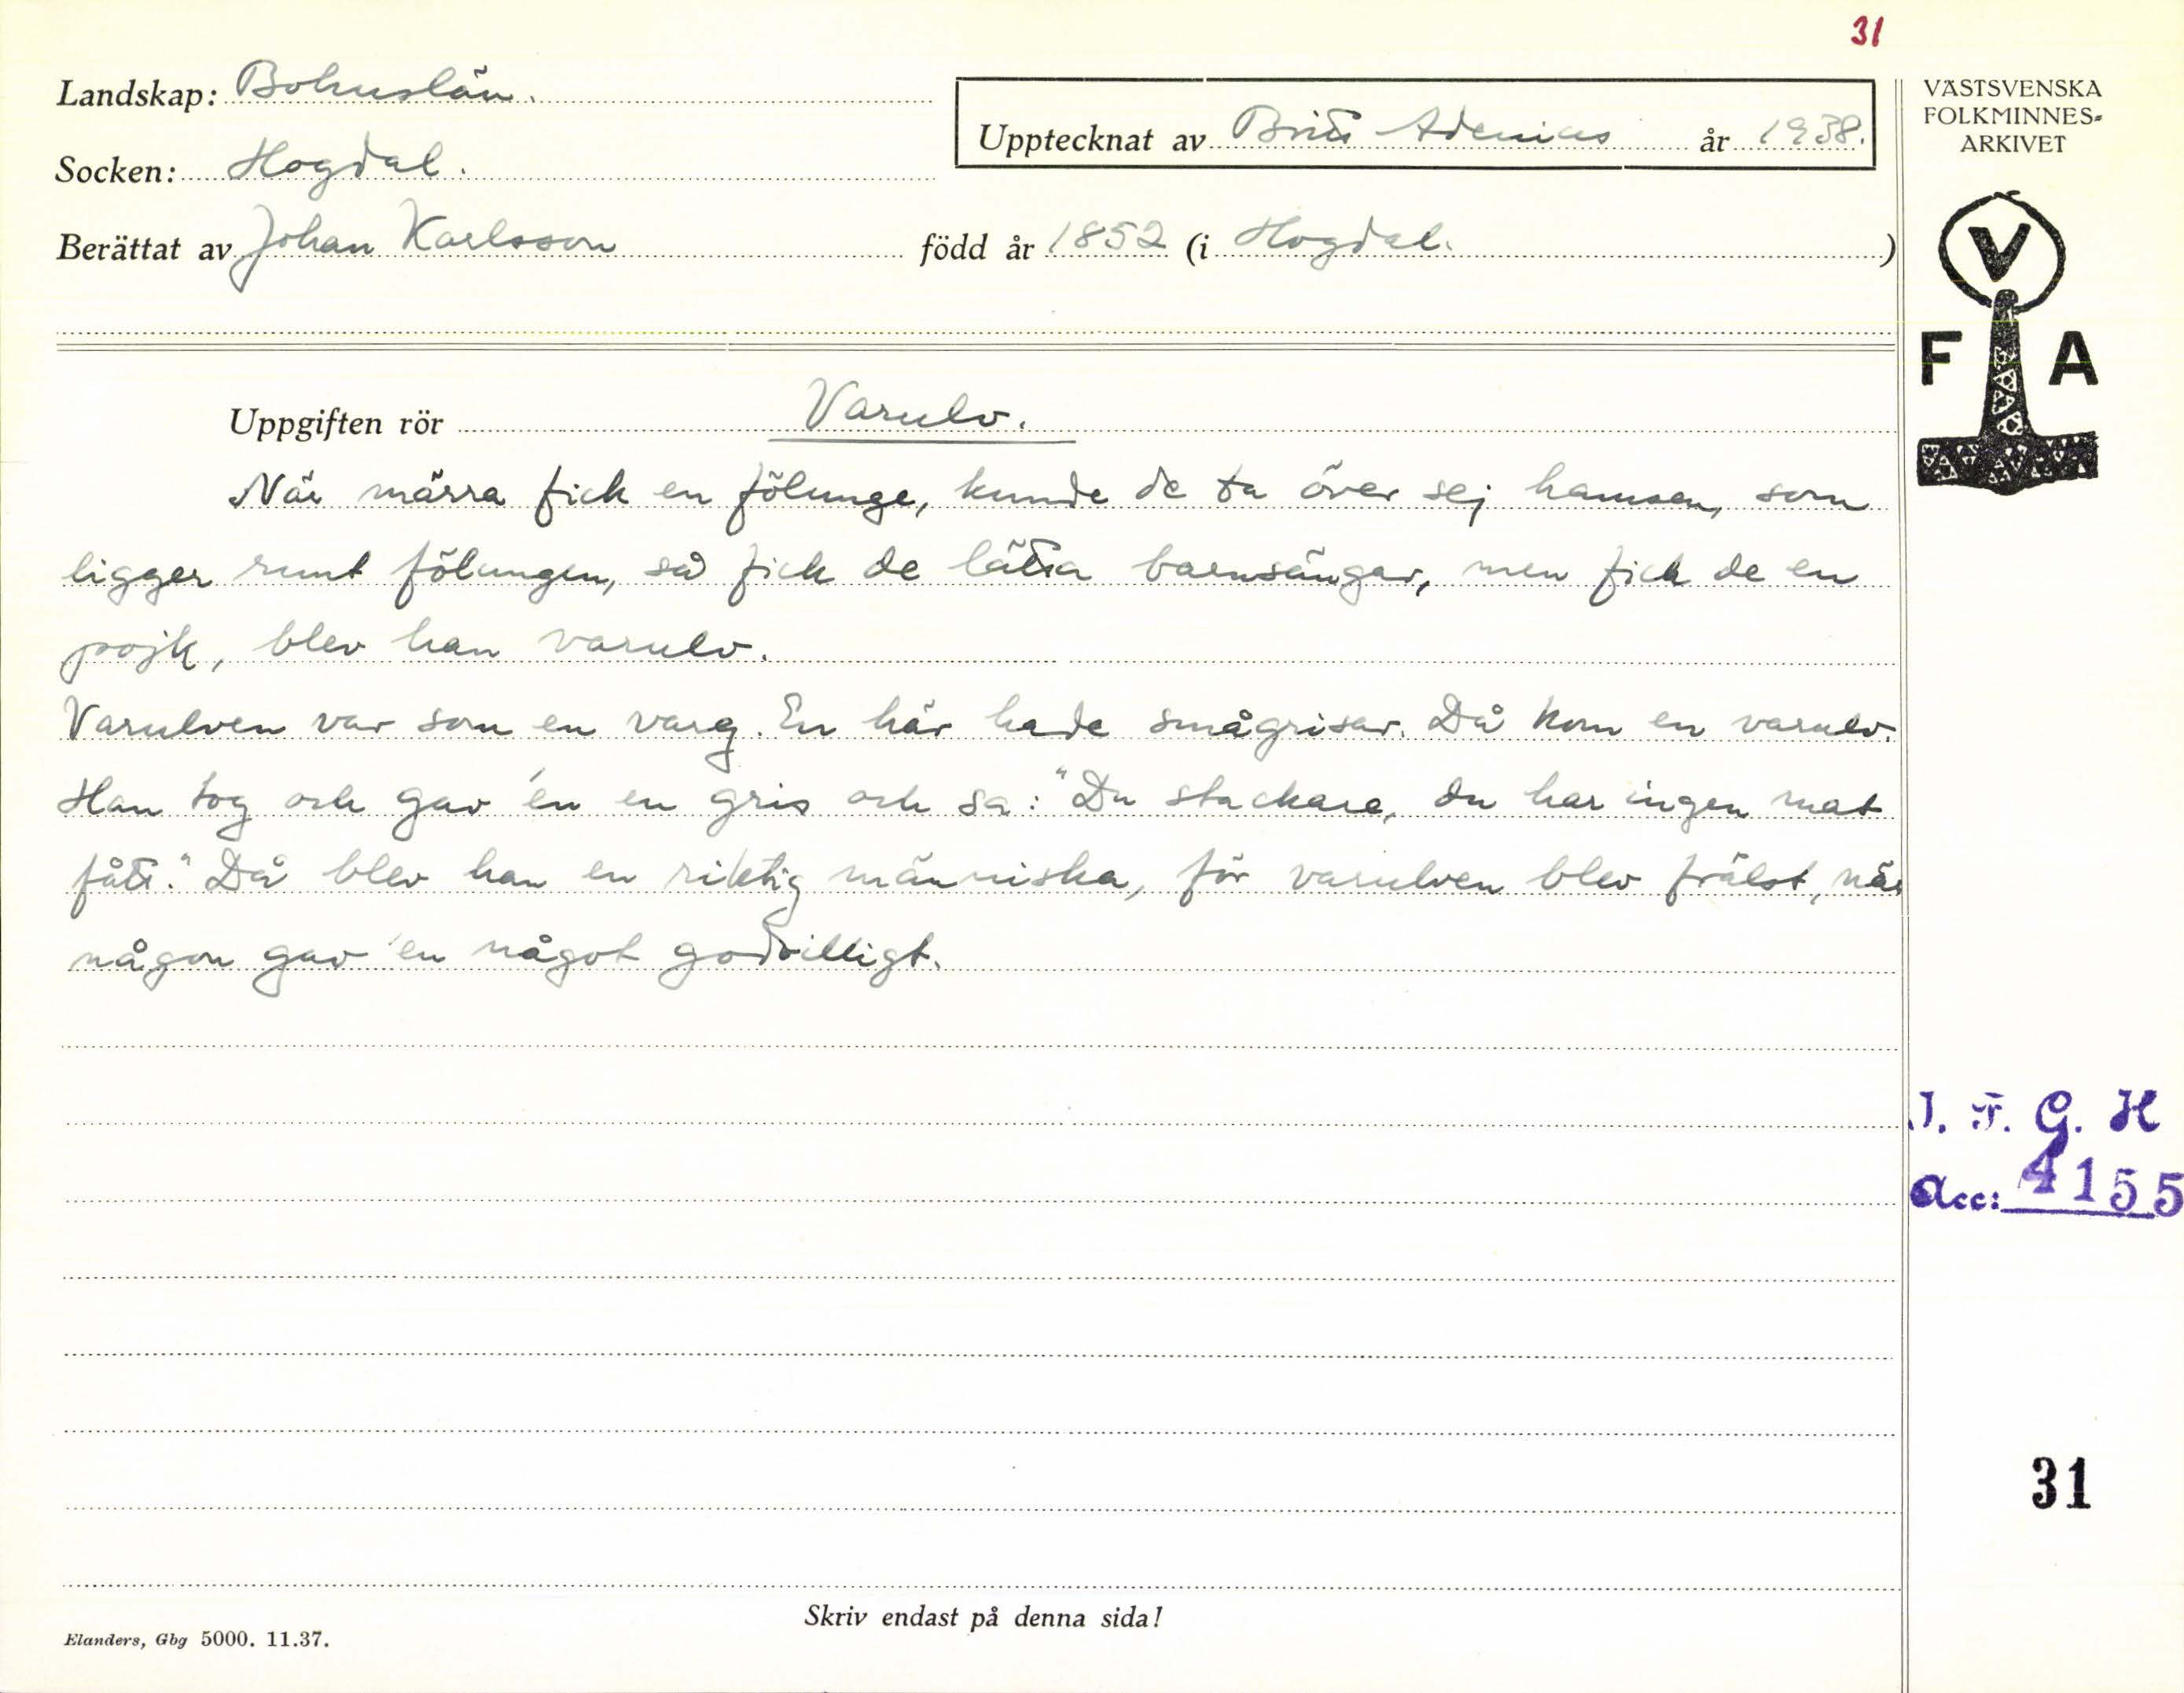 31
Landskap: Bohuslän.
Upptecknat av Britt Adenius år 1938.
Socken: Hogdal.
Berättat av Johan Karlsson född år 1852 (i Hogdal. )
VÄSTSVENSKA
FOLKMINNES-
ARKIVET
V
F A
Uppgiften rör Varulv.
När märra fick en fölunge, kunde de ta över sej hamsen, som
ligger runt fölungen, så fick de lätta barnsängar, men fick de en
pojk, blev han varulv.
Varulven var som en varg. En här hade smågrisar. Då kom en varulv.
Han tog och gav 'en en gris och sa: "Du stackare, du har ingen mat
fått." Då blev han en riktig människa, för varulven blev frälst, när
någon gav 'en något godvilligt.
I. F. G. H
Acc: 4155
31
Skriv endast på denna sida!
Elanders, Gbg 5000. 11.37.